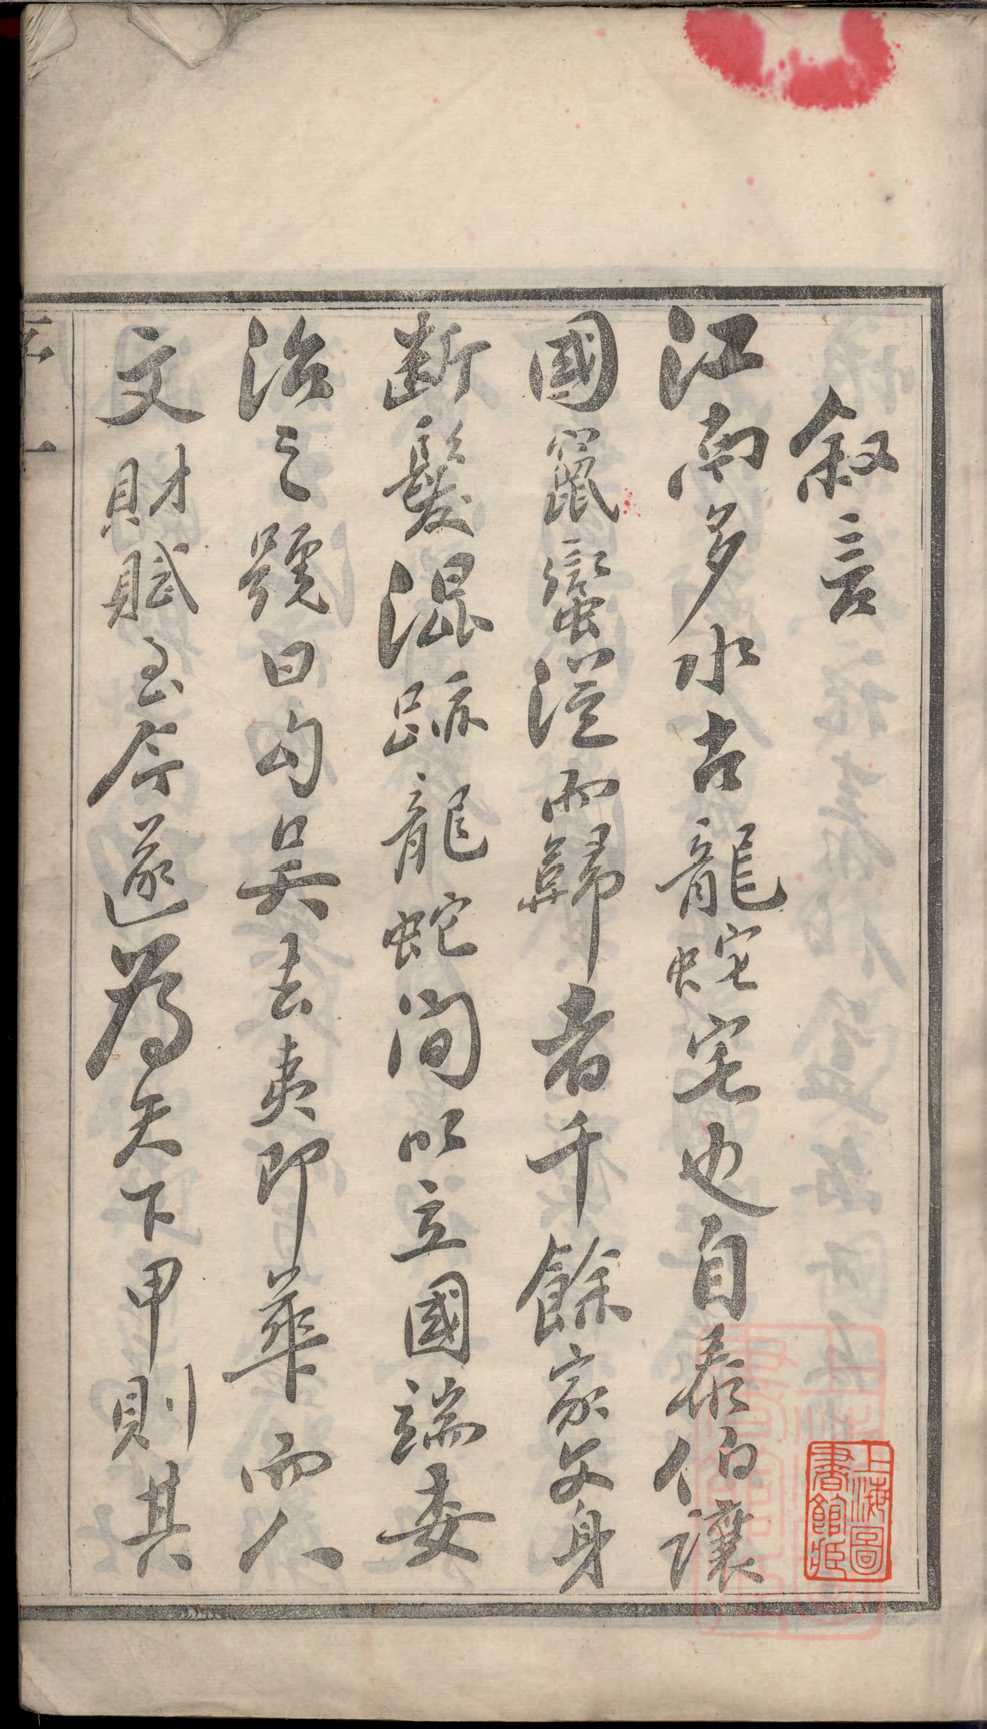 叙言
江南多水古龍蛇宅也自泰伯讓
國竄蠻從而歸者千餘家文身
斷髮混跡龍蛇間以立國端委
治之號曰勾吳去夷即華而人
文財賦至今遂為天下甲則其
序 一
上海圖書館藏